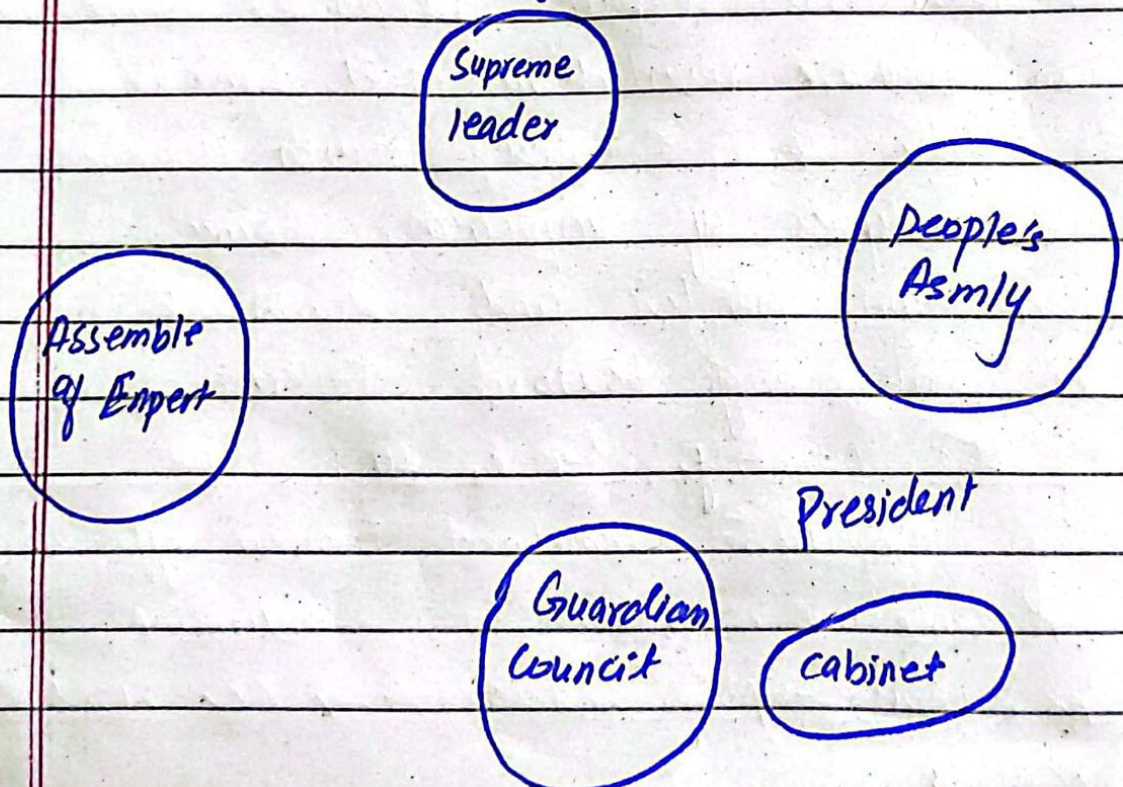 Supreme
leader
People's
Asmly
Assemble
of Enpert
President
Guardian
Council
cabinet